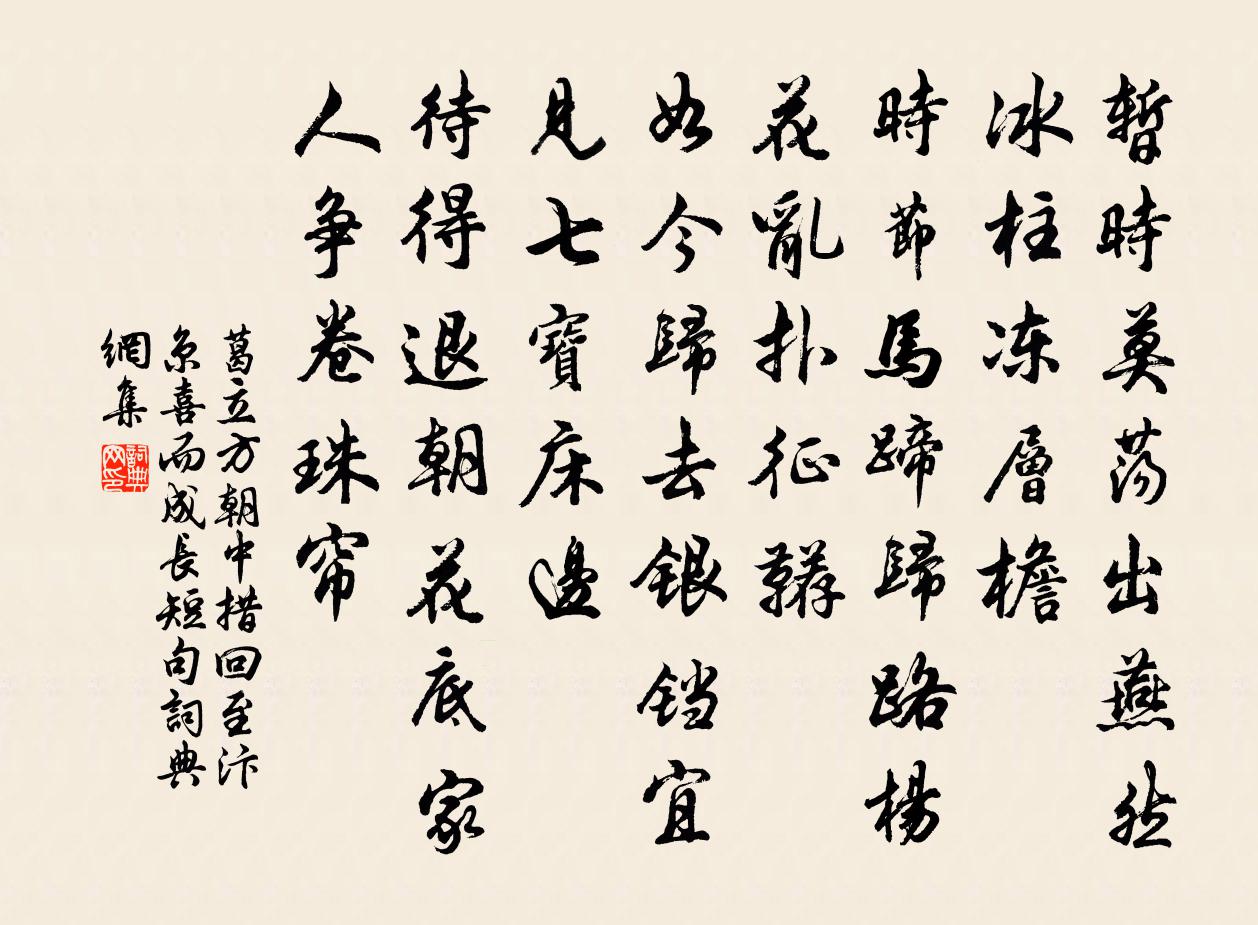 暫時莫蕩出燕然
冰柱冻層檐
時節馬蹄歸路楊
花亂扑征韉
如今歸去銀铛宜
見七寶床邊
待得退朝花底家
人争卷珠帘
葛立方朝中措回至汴
京喜而成長短句詞典
網集
詞典网印